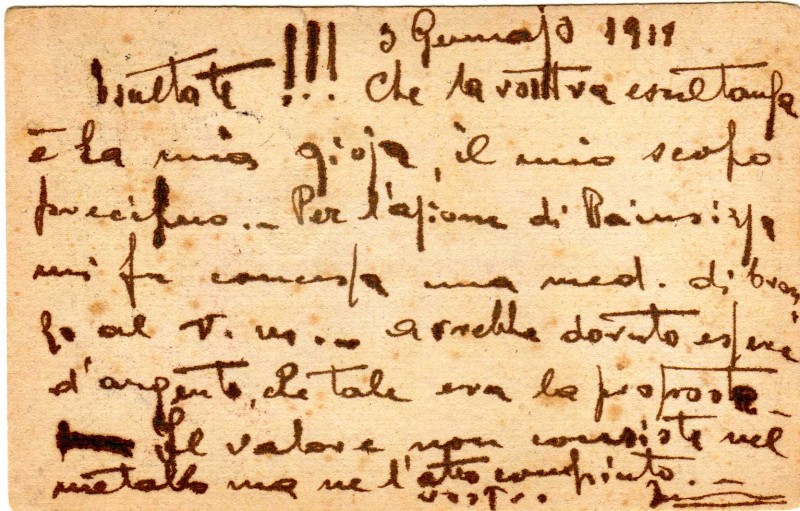 3 Gennajo 1918
Esultate!!! Che la vostra esultanza
è la mia gioja, il mio scopo
precipuo._ Per l'azione di Bainsizza
mi fu concessa una med. di bron
zo al V. m._ avrebbe dovuto essere
d'argento, che tale era la proposta_
Il valore non consiste nel
metallo ma ne l'atto compiuto._
vostro